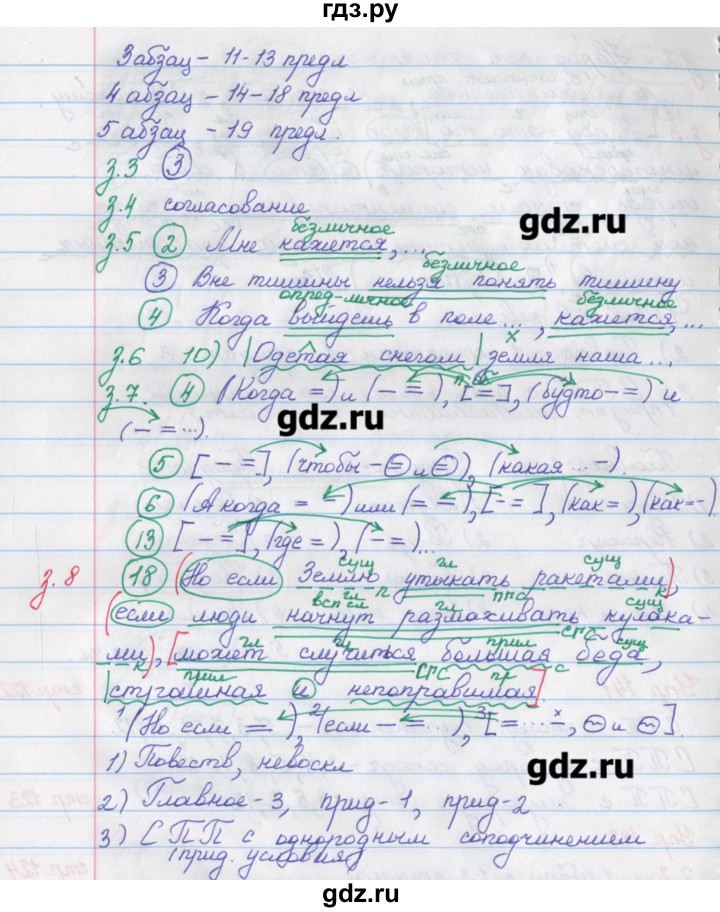 гдз.ру
3 абзац - 11-13 предл
4 абзац - 14-18 предл
5 абзац - 19 предл.
з.3 3
з.4 согласование
gdz.ru
безличное
з.5 2 Мне кажется, ...
безличное
3 Вне тишины нельзя понять тишину
опред-личное безличное
4 Когда выйдешь в поле ..., кажется, ...
х
з.6 10) |Одетая снегом| земля наша ...
з.7. 4 (Когда =) и (- =), [=], (будто - =) и
(- = ...).
gdz.ru
5 [- =], (чтобы - = и =), (какая ... -).
6 (А когда = -) или (= =), [- =], (как =), (как = -).
13 [- =], (где =), (- =)...
сущ гл сущ
з.8 18 (Но если Землю утыкать ракетами),
всп гл гл сущ
(если люди начнут размахивать кулака-
гл прил СПС сущ
ми), [может случиться большая беда,
прил СРС пр с
|страшная и непоправимая].
1(Но если =), 2(если - = ...), 3[= ... х, ~ и ~].
1) Повеств, невоскл
gdz.ru
2) Главное - 3, прид - 1, прид - 2
3) СПП с однородным соподчинением
(прид. условия)
gdz.ru